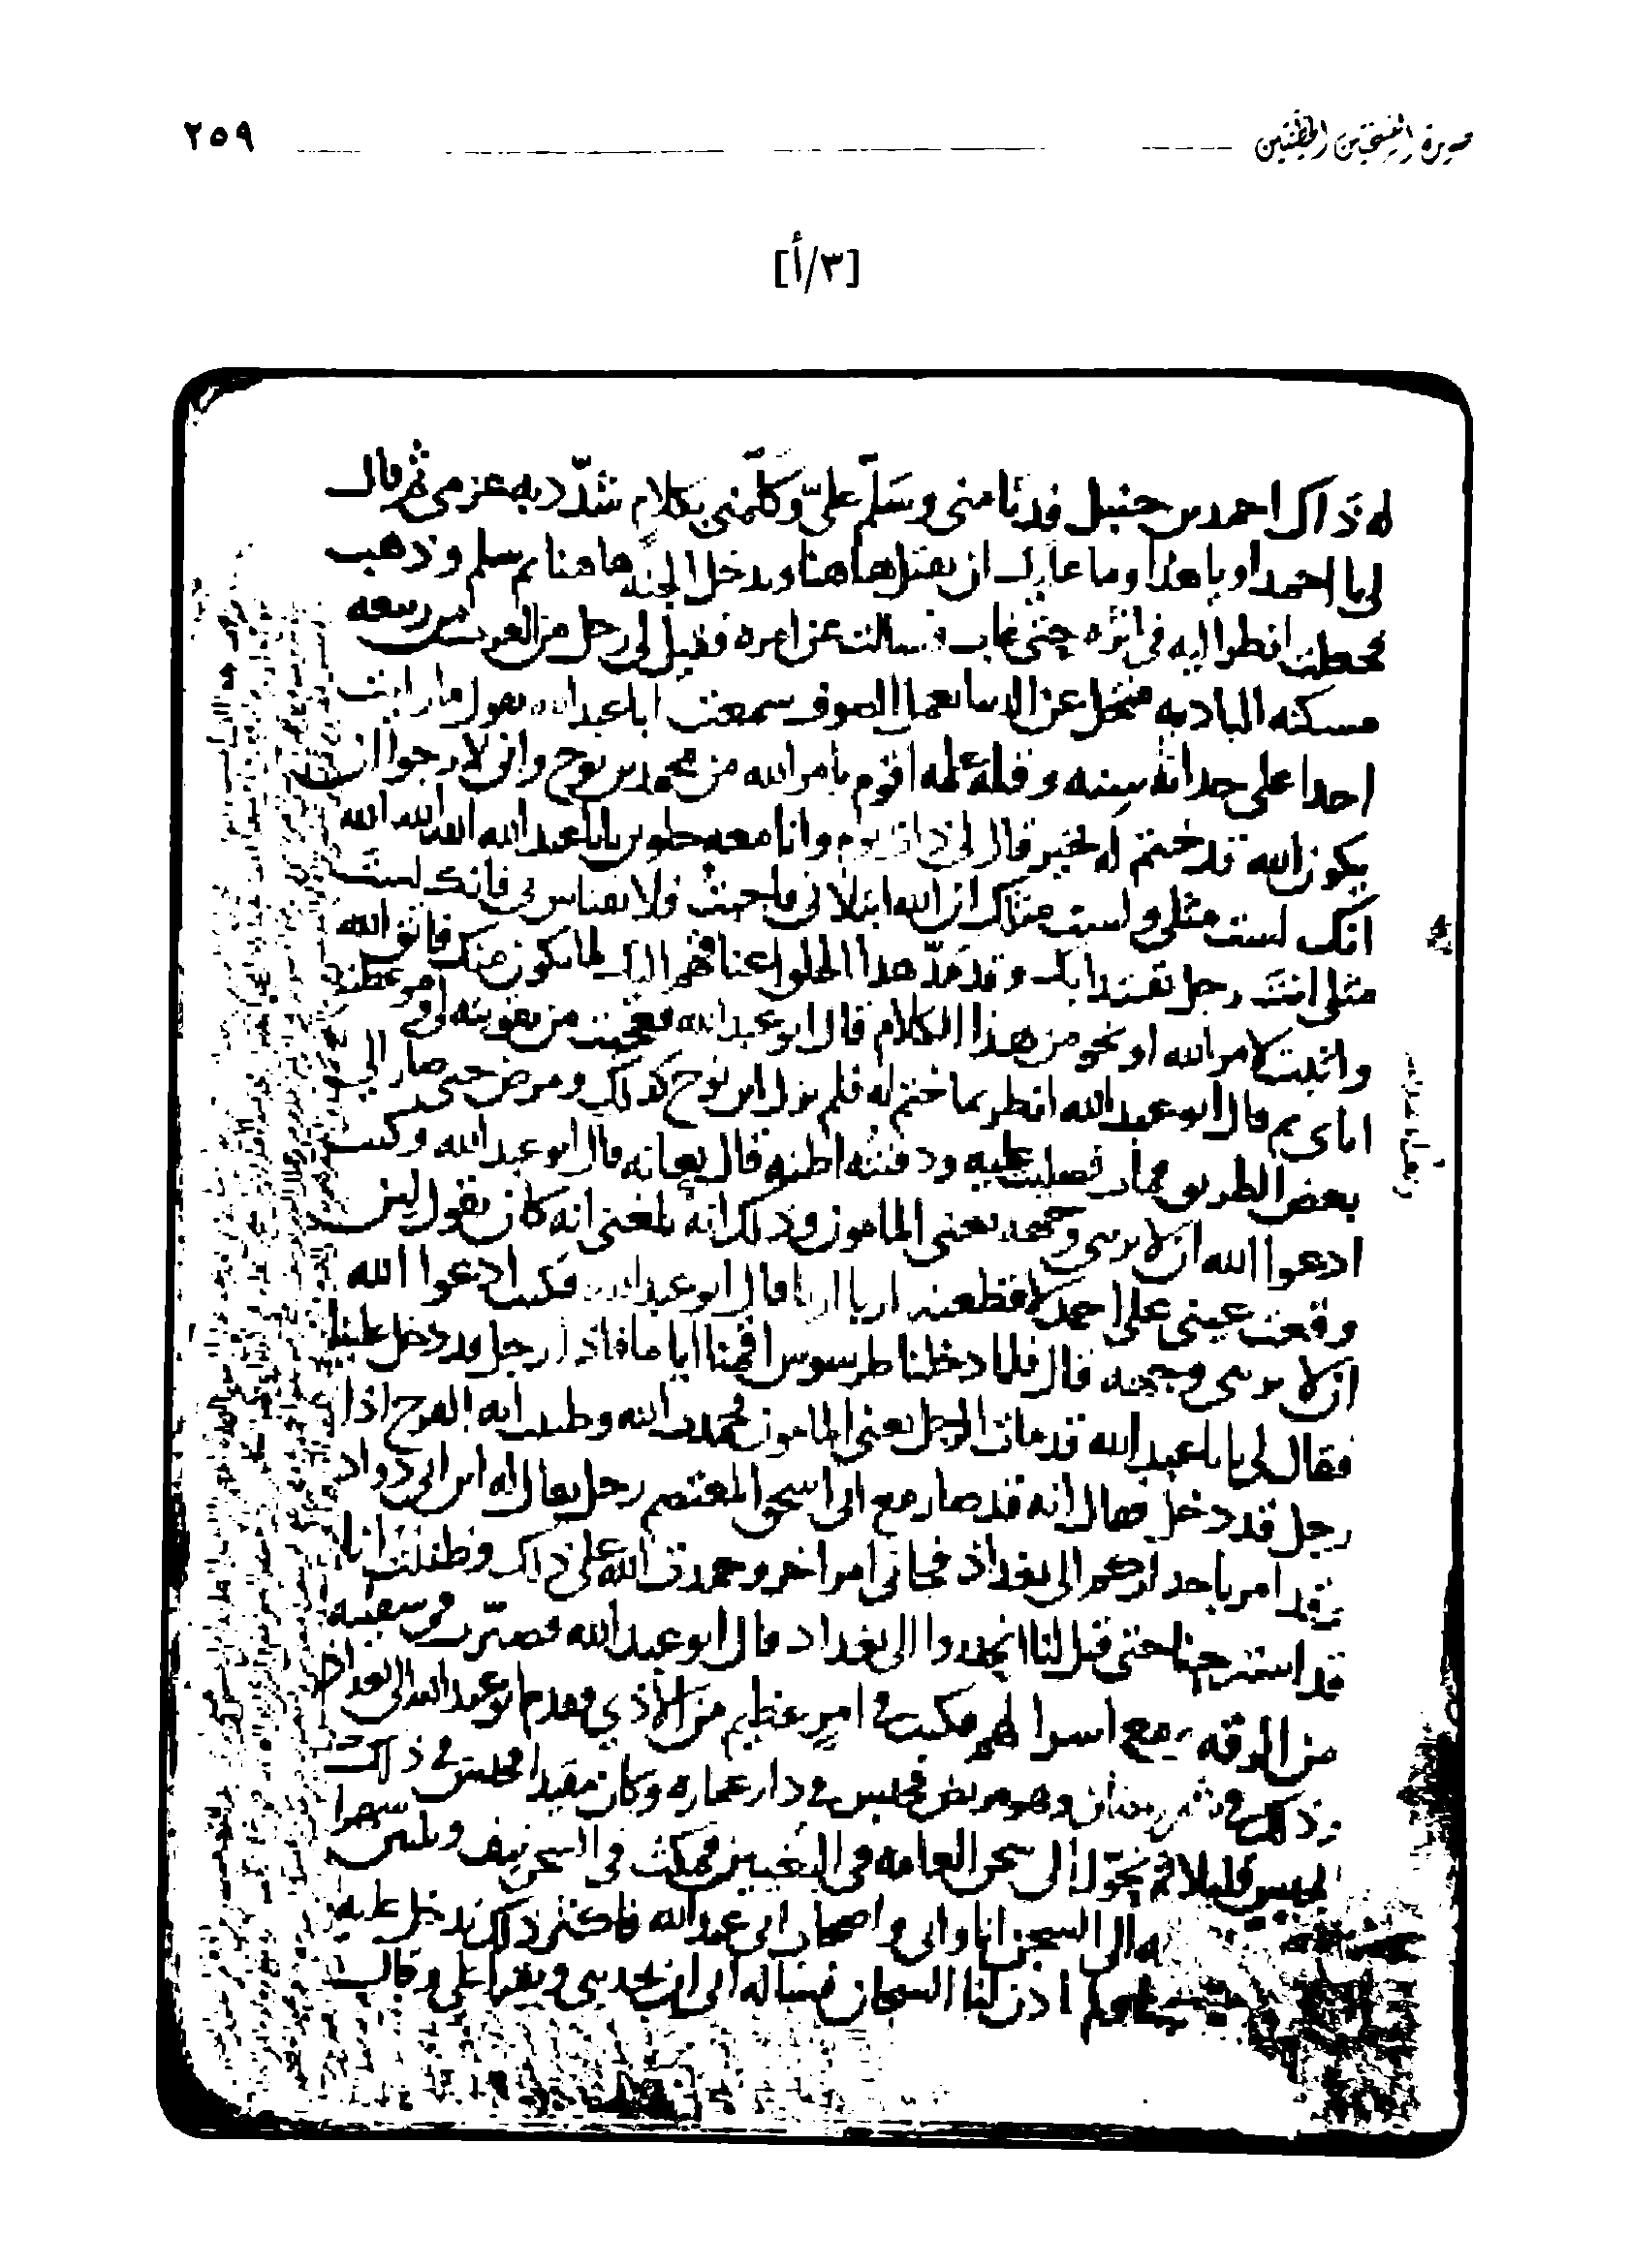 صورة النسختين الخطيتين ٢٥٩
[٣/أ]
له ذاك احمد بن حنبل فدنا مني وسلّم عليّ وكلّمني بكلام شدّد به عزمي ثم قال
لي يا احمد او يا هذا وما عليك ان تقتل هاهنا وتدخل الجنة هاهنا ثم سلم وذهب
فجعلت انظر اليه في اثره حتى غاب فسالت عن امره فقيل لي رجل من العرب من ربيعه
مسكنه الباديه متخل عن الدنيا يعمل الصوف سمعت ابا عبد الله يقول ما رايت
احدا على حداثة سنه وقلة علمه اقوم بامر الله من محمد بن نوح واني لارجو ان
يكون الله قد ختم له بخير قال لي ذات يوم وانا معه جلوس يابا عبد الله الله الله
انك لست مثلي ولست مثلك ان الله ابتلاني فاجبت فلا تقاس بي فانك لست
مثلي انت رجل يقتدا بك وقد مدّ هذا الخلق اعناقهم اليك لما يكون منك فاتق الله
واثبت لامر الله او نحو من هذا الكلام قال ابو عبد الله فعجبت من تقويته لي وموعظته
اياي ثم قال ابو عبد الله انظر بما ختم له فلم يزل ابن نوح كذلك ومرض حتى صار الى
بعض الطريق فمات فصليت عليه ودفنته اظنه قال بعانه قال ابو عبد الله وكنت
ادعوا الله ان لا يريني وجهه يعني المامون وذلك انه بلغني انه كان يقول لئن
وقعت عيني على احمد لاقطعنه اربا اربا قال ابو عبد الله فكنت ادعوا الله
ان لا يريني وجهه قال فلما دخلنا طرسوس اقمنا اياما فاذا رجل قد دخل علينا
فقال لي يابا عبد الله قد مات الرجل يعني المامون فحمدت الله وظننت انه الفرج اذا
رجل قد دخل فقال انه قد صار مع ابي اسحق المعتصم رجل يقال له ابن ابي دواد
وقد امر باحداركم الى بغداذ فجاني امر اخر وحمدت الله على ذلك وظننت انا
قد استرحنا حتى قيل لنا انحدروا الى بغداد قال ابو عبد الله فصيّرت في سفينه
من الرقه مع اسرا لهم فكنت في امر عظيم من الاذي وقدم ابو عبد الله الى بغداذ
وذلك في شهر رمضان وهو مريض فحبس في دار عماره وكان مقيدا فحبس في ذلك
الحبس قليلا ثم تحوّل الى سجن العامه في البغيين فمكث في السجن نيف وثلثين شهرا
الى السجن انا وابي واصحاب ابي عبد الله فاكثر ذلك ندخل عليه
اذن لنا السجان فساله ابي ان يحدثني ويقرا علي وقال